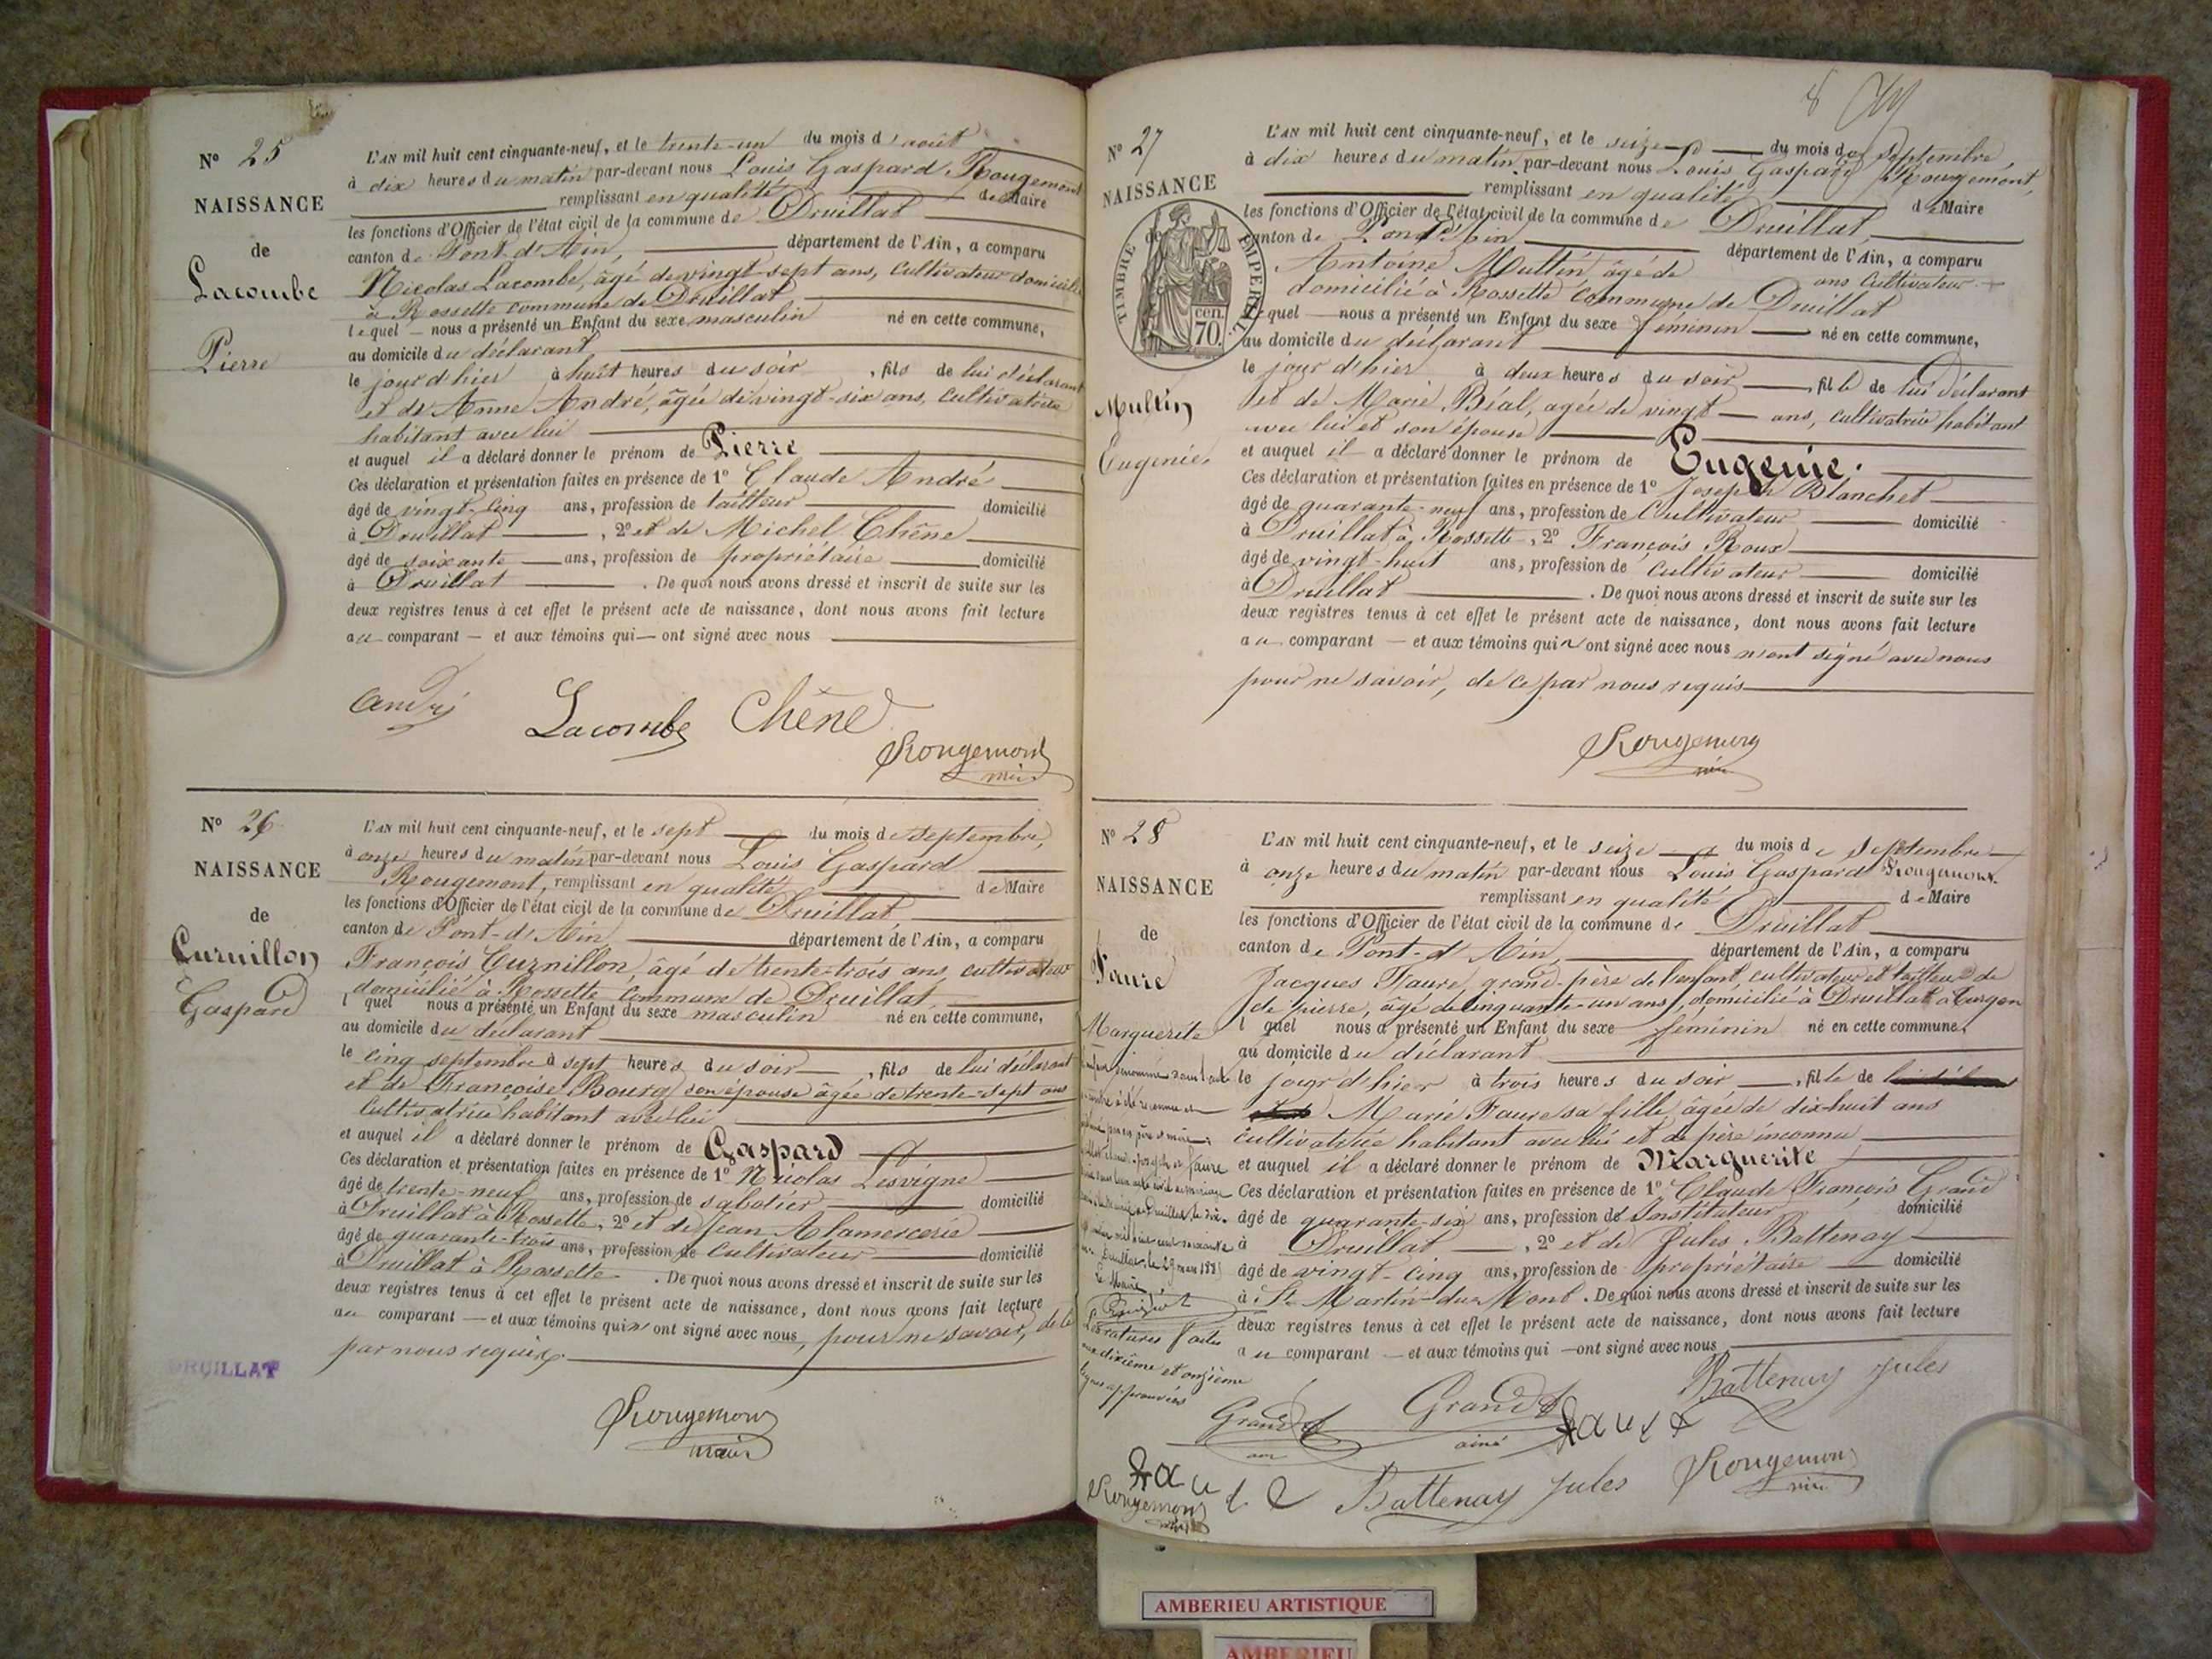 Nº 25
NAISSANCE
de
Lacombe
Pierre
L'AN mil huit cent cinquante-neuf, et le trente-un du mois d'août
à dix heures du matin par-devant nous Louis Gaspard Rougemont
remplissant en qualité de Maire
les fonctions d'Officier de l'état civil de la commune de Druillat
canton de Pont-d'Ain, département de l'Ain, a comparu
Nicolas Lacombe, âgé de vingt-sept ans, cultivateur domicilié
à Rossette commune de Druillat
lequel nous a présenté un Enfant du sexe masculin né en cette commune,
au domicile du déclarant
le jour d'hier à huit heures du soir, fils de lui déclarant
et de Anne André, âgée de vingt-six ans, cultivatrice
habitant avec lui
et auquel il a déclaré donner le prénom de Pierre
Ces déclaration et présentation faites en présence de 1º Claude André
âgé de vingt-cinq ans, profession de tailleur domicilié
à Druillat, 2º et de Michel Chêne
âgé de soixante ans, profession de propriétaire domicilié
à Druillat. De quoi nous avons dressé et inscrit de suite sur les
deux registres tenus à cet effet le présent acte de naissance, dont nous avons fait lecture
au comparant et aux témoins qui ont signé avec nous
André Lacombe Chêne
Rougemont
maire
Nº 26
NAISSANCE
de
Curnillon
Gaspard
L'AN mil huit cent cinquante-neuf, et le sept du mois de septembre,
à onze heures du matin par-devant nous Louis Gaspard
Rougemont, remplissant en qualité de Maire
les fonctions d'Officier de l'état civil de la commune de Druillat
canton de Pont-d'Ain département de l'Ain, a comparu
François Curnillon, âgé de trente-trois ans, cultivateur
domicilié à Rossette commune de Druillat
l quel nous a présenté un Enfant du sexe masculin né en cette commune,
au domicile du déclarant
le cinq septembre à sept heures du soir, fils de lui déclarant
et de Françoise Bourg son épouse âgée de trente-sept ans
cultivatrice habitant avec lui
et auquel il a déclaré donner le prénom de Gaspard
Ces déclaration et présentation faites en présence de 1º Nicolas Lesvigne
âgé de trente-neuf ans, profession de sabotier domicilié
à Druillat à Rossette, 2º et de Jean Alamercerie
âgé de quarante-trois ans, profession de cultivateur domicilié
à Druillat à Rossette. De quoi nous avons dressé et inscrit de suite sur les
deux registres tenus à cet effet le présent acte de naissance, dont nous avons fait lecture
au comparant et aux témoins qui n'ont signé avec nous, pour ne savoir, de ce
par nous requis.
DRUILLAT
Rougemont
maire
Nº 27
NAISSANCE
de
TIMBRE IMPERIAL
cen.
70.
Multin
Eugenie
L'AN mil huit cent cinquante-neuf, et le seize du mois de septembre,
à dix heures du matin par-devant nous Louis Gaspard Rougemont,
remplissant en qualité de Maire
les fonctions d'Officier de l'état civil de la commune de Druillat
canton de Pont-d'Ain département de l'Ain, a comparu
Antoine Multin, âgé de ans cultivateur
domicilié à Rossette commune de Druillat
lequel nous a présenté un Enfant du sexe féminin né en cette commune,
au domicile du déclarant
le jour d'hier à deux heures du soir, fille de lui déclarant
et de Marie Béal, agée de vingt ans, cultivatrice habitant
avec lui et son épouse
et auquel il a déclaré donner le prénom de Eugenie.
Ces déclaration et présentation faites en présence de 1º Joseph Blanchet
âgé de quarante-neuf ans, profession de Cultivateur domicilié
à Druillat à Rossette, 2º François Roux
âgé de vingt-huit ans, profession de cultivateur domicilié
à Druillat. De quoi nous avons dressé et inscrit de suite sur les
deux registres tenus à cet effet le présent acte de naissance, dont nous avons fait lecture
au comparant et aux témoins qui n'ont signé avec nous n'ont signé avec nous
pour ne savoir, de ce par nous requis
Rougemont
maire
Nº 28
NAISSANCE
de
Faure
Marguerite
L'AN mil huit cent cinquante-neuf, et le seize du mois de septembre
à onze heures du matin par-devant nous Louis Gaspard Rougemont
remplissant en qualité de Maire
les fonctions d'Officier de l'état civil de la commune de Druillat
canton de Pont-d'Ain, département de l'Ain, a comparu
Jacques Faure, grand-père de l'enfant, cultivateur et tailleur de
de pierre, âgé de cinquante-un ans, domicilié à Druillat à Turgon
l quel nous a présenté un Enfant du sexe féminin né en cette commune,
au domicile du déclarant
le jour d'hier à trois heures du soir, fille de
Marie Faure sa fille, âgée de dix-huit ans
cultivatrice habitant avec lui et de père inconnu
et auquel il a déclaré donner le prénom de Marguerite
Ces déclaration et présentation faites en présence de 1º Claude François Grand
âgé de quarante-six ans, profession de Instituteur domicilié
à Druillat, 2º et de Jules Battenay
âgé de vingt-cinq ans, profession de propriétaire domicilié
à St Martin-du-Mont. De quoi nous avons dressé et inscrit de suite sur les
deux registres tenus à cet effet le présent acte de naissance, dont nous avons fait lecture
au comparant et aux témoins qui ont signé avec nous
le Maire
ratures faites
aux dixième et onzième
lignes approuvées
Battenay Jules
Grand
Grand
ainé
Faure
Faure
Rougemont
Battenay Jules
Rougemont
maire
AMBERIEU ARTISTIQUE
AMBERIEU